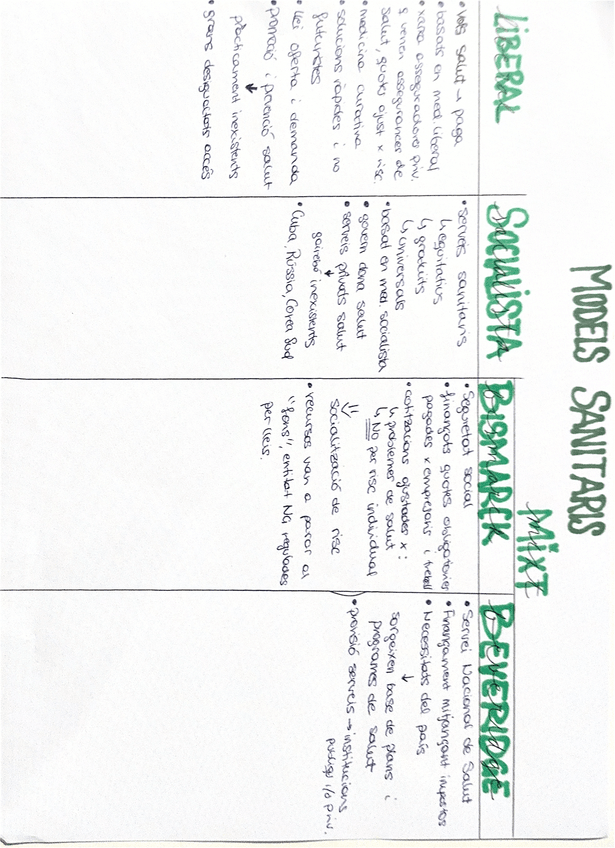 MODELS SANITARIS
LIBERAL
• Vols salut → paga
• basats en med. liberal
• xarxa asseguradores priv.
q venen assegurances de
salut, quotes ajust x risc.
• medicina curativa
• solucions ràpides i no
futuristes
• llei oferta i demanda
• promoció i prevenció salut
↓
pràcticament inexistents
• grans desigualtats accés
SOCIALISTA
• serveis sanitaris
↳ equitatius
↳ gratuïts
↳ universals
• basat en med. socialista
• govern dona salut
• serveis privats salut
↓
gairebé inexistents
• Cuba, Rússia, Corea Sud
MIXT
BISMARCK
• Seguretat social
• finançats quotes obligatories
pagades x empresaris i treball
• cotitzacions ajustades x:
↳ problemes de salut
↳ NO per risc individual
socialització de risc
• recursos van a parar al
"fons", entitat NG regulades
per lleis.
BEVERIDGE
• Servei Nacional de Salut
• Finançament mitjançant impostos
• Necessitats del país
↓
sorgeixen base de plans i
programes de salut
• provisió serveis → institucions
públiq i/o priv.